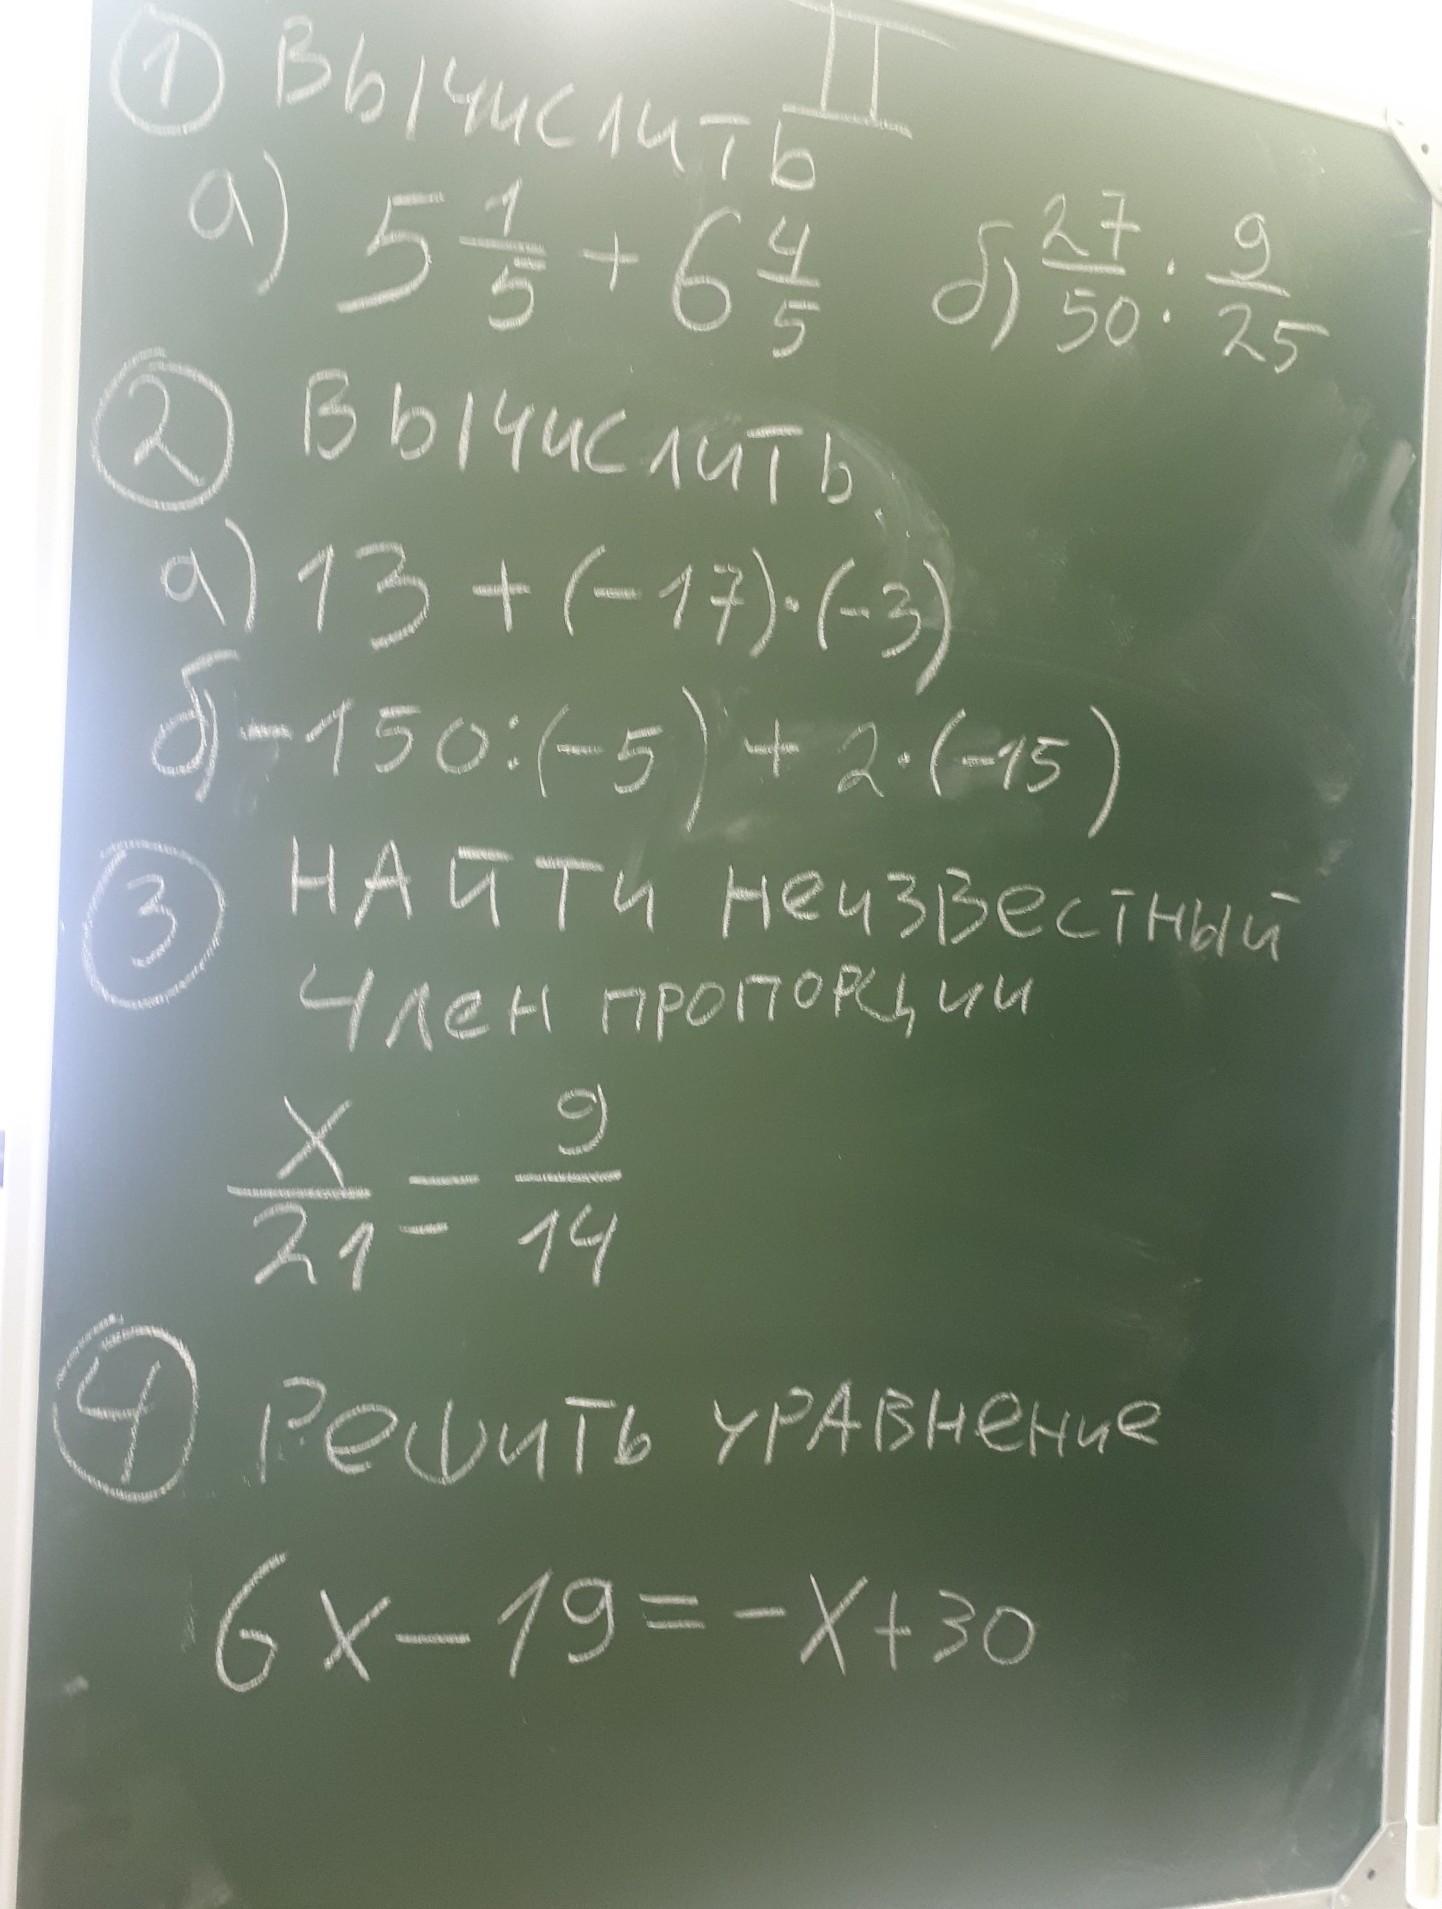 II
① Вычислить
а) 5 1/5 + 6 4/5 б) 27/50 : 9/25
② Вычислить.
а) 13 + (-17)·(-3)
б) -150:(-5) + 2·(-15)
③ НАЙТИ неизвестный
член пропорции
x/21 = 9/14
④ Решить уравнение
6x-19=-x+30